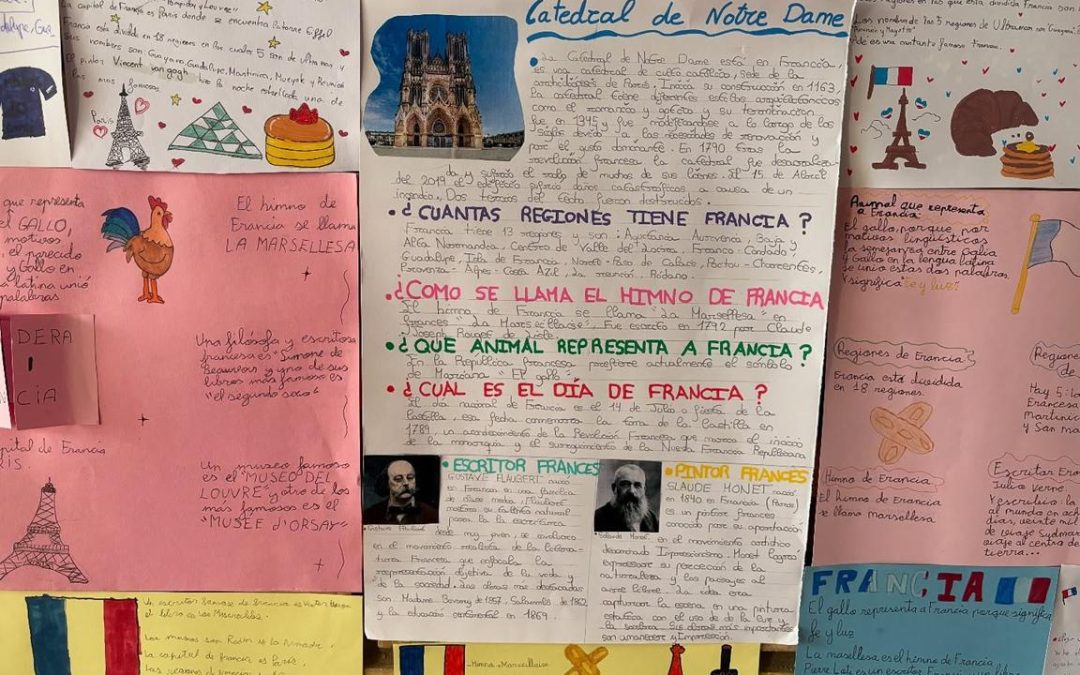 La capital de Francia es París donde se encuentra la torre Eiffel
Francia está dividida en 18 regiones en los cuales 5 son de Ultramar y
Sus nombres son Guayana, Guadalupe, Martinica, Mayotte y Reunión
El pintor Vincent van gogh hizo la noche estrellada una de
las más famosas
París
que representa
el GALLO,
motivos
, el parecido
y Gallo en
latina unió
palabras
El himno de
Francia se llama
LA MARSELLESA
DERA
CIA
Una filósofa y escritora
francesa es "Simone de
Beauvoir y uno de sus
libros más famoso es
"el segundo sexo"
capital de Francia
RÍS.
Un museo famoso
es el "MUSEO DEL
LOUVRE" y otro de los
más famosos es el
"MUSEE d'ORSAY"
Catedral de Notre Dame
La Catedral de Notre Dame está en Francia
es una catedral de culto católico, sede de la
archidiócesis de París. Inicia su construcción en 1163,
la catedral sobre diferentes estilos arquitectónicos
como el románico y gótico y su terminación
fue en 1345 y fue modificandose a lo largo de los
siglos devido a las necesidades de renovación y
por el gusto dominante. En 1790 tras la
revolución francesa la catedral fue desacraliza-
da y sufrió el robo de muchos de sus bienes. El 15 de Abril
del 2019 el edificio sufrió daños catastróficos a causa de un
incendio. Dos tercios del techo fueron destruidos.
• ¿CUANTAS REGIONES TIENE FRANCIA?
Francia tiene 13 regiones y son: Aquitania, Auvernia, Baja y
Alta Normandea, Centro de Valle del Loira, Franco-Condado,
Guadalupe, Isla de Francia, Norte-Paso de Calace, Poitou-Charentes,
Provenza-Alpes-Costa Azil, La reunión, Ródano.
• ¿COMO SE LLAMA EL HIMNO DE FRANCIA
El himno de Francia se llama "La Marsellesa" en
frances "La Marseillaise". Fue escrito en 1792 por Claude
Joseph Rouget de Lisle.
• ¿QUE ANIMAL REPRESENTA A FRANCIA?
En la República Francesa prefiere actualmente el símbolo
de Mariana "El gallo"
• ¿CUAL ES EL DÍA DE FRANCIA?
El día nacional de Francia es el 14 de Julio o fiesta de la
Bastilla, esa fecha conmemora la toma de la Bastilla en
1789, un acontecimiento de la Revolución Francesa que marca el inicio
de la monarquía y el surgimiento de la Nueva Francia Republicana
• ESCRITOR FRANCES
GUSTAVE FLAUBERT nació
en Francia en una familia
de clase media.
para la escritura
desde muy joven, se involucra
en el movimiento realista de la litera-
tura Francesa que enfocaba la
representación objetiva de la vida y
de la sociedad. Sus obras mas destacadas
son Madame Bovary de 1857, Salambó de 1862
y la educación sentimental en 1869.
• Gustave Flaubert
• PINTOR FRANCES
CLAUDE MONET nació
en 1840 en Francia (París)
es un pintor Frances
conocido por su aportación
en el movimiento artístico
denominado Impresionismo. Monet logra
expresar su percepción de la
naturaleza y los paisajes al
aire libre. La idea era
capturar la escena en una pintura
estática con el uso de de la luz y
la sombra. Sus obras más importantes
son amanecer y Impresión.
Claude Monet.
Animal que representa
a Francia:
El gallo, porque, por
motivos lingüísticos
la semejanza entre Galia
y Gallo en la lengua latina
se unio estas dos palabras
significa "fe y luz"
Regiones de Francia
Francia está dividida
en 18 regiones.
Himno de Francia
El himno de Francia
se llama marsellesa
Regione
de
Hay 5: la
Francesa
Martinic
y San ma
Escritor Fra
Julio Verne.
Y escribió: la
al mundo en och
días, veinte mil
de viaje sydmar
viaje al centro de
tierra...
FRANCIA
El gallo representa a Francia porque significa
fe y luz
La masellesa es el himno de Francia
Un escritor famoso de francia es Victor
el libro es Los Miserables.
La capital de francia es París.
-Himno-Marsellaise